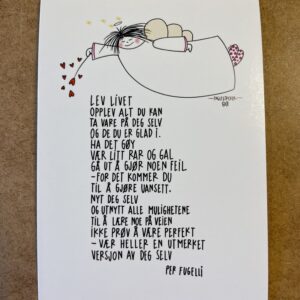 LEV LIVET
OPPLEV ALT DU KAN
TA VARE PÅ DEG SELV
OG DE DU ER GLAD I.
HA DET GØY
VÆR LITT RAR OG GAL
GÅ UT Å GJØR NOEN FEIL
-FOR DET KOMMER DU
TIL Å GJØRE UANSETT.
NYT DEG SELV
OG UTNYTT ALLE MULIGHETENE
TIL Å LÆRE NOE PÅ VEIEN
IKKE PRØV Å VÆRE PERFEKT
- VÆR HELLER EN UTMERKET
VERSJON AV DEG SELV
PER FUGELLI